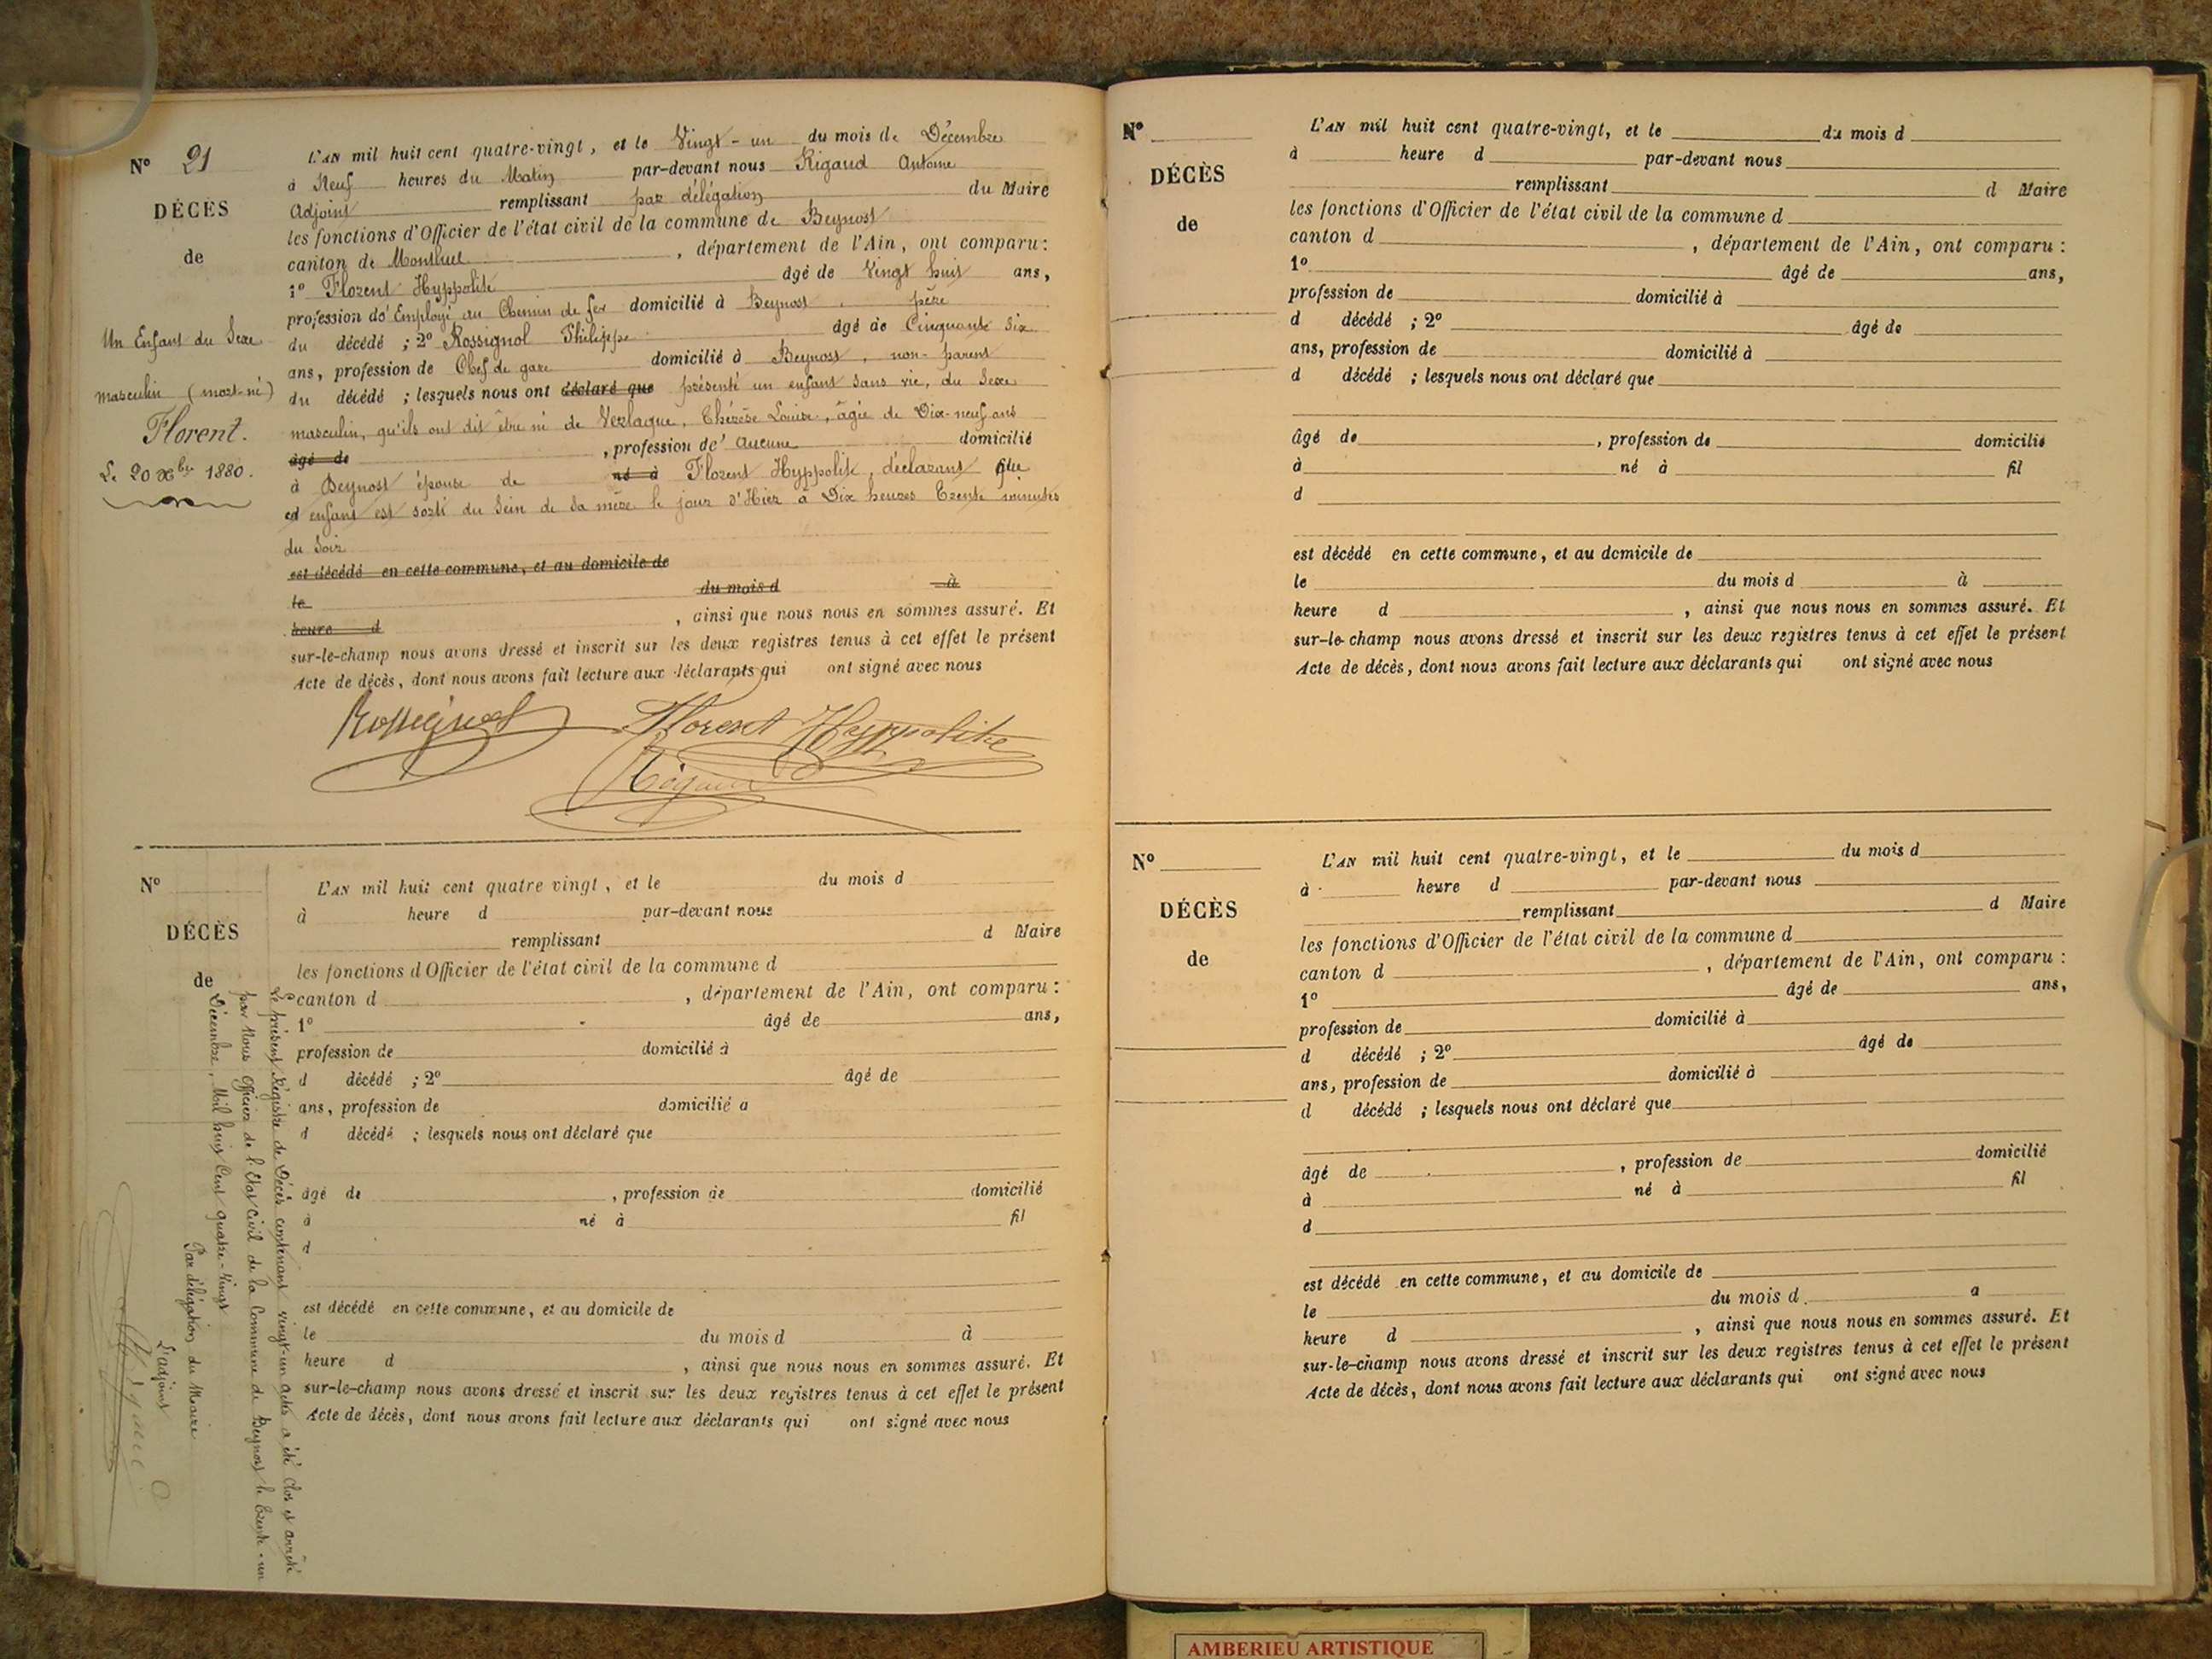 N° 21
DÉCÈS
de
Un Enfant du Sexe
masculin (mort-né)
Florent.
Le 20 Xbre 1880.
L'AN mil huit cent quatre-vingt, et le Vingt-un du mois de Décembre
à Neuf heures du Matin par-devant nous Rigaud Antoine
Adjoint remplissant par délégation du Maire
les fonctions d'Officier de l'état civil de la commune de Beynost
canton de Montluel, département de l'Ain, ont comparu:
1° Florent Hyppolite âgé de Vingt huit ans,
profession d'Employé au Chemin de fer domicilié à Beynost, père
du décédé ; 2° Rossignol Philippe âgé de Cinquante six
ans, profession de Chef de gare domicilié à Beynost, non-parent
du décédé ; lesquels nous ont déclaré que présenté un enfant sans vie, du Sexe
masculin, qu'ils ont dit être né de Verlaque, Thérèse Louise, âgée de Dix-neuf ans
âgé de , profession de Aucune domicilié
à Beynost épouse de né à Florent Hyppolite, déclarant que
cet enfant est sorti du Sein de Sa mère le jour d'Hier à Dix heures Trente minutes
du Soir
est décédé en cette commune, et au domicile de
le du mois d à
heure d , ainsi que nous nous en sommes assuré. Et
sur-le-champ nous avons dressé et inscrit sur les deux registres tenus à cet effet le présent
Acte de décès, dont nous avons fait lecture aux déclarants qui ont signé avec nous
Rossignol Florent Hyppolite
Rigaud
N°
DÉCÈS
de
L'AN mil huit cent quatre vingt, et le du mois d
à heure d par-devant nous
remplissant d Maire
les fonctions d'Officier de l'état civil de la commune d
canton d , département de l'Ain, ont comparu :
1° âgé de ans,
profession de domicilié à
d décédé ; 2° âgé de
ans, profession de domicilié à
d décédé ; lesquels nous ont déclaré que
âgé de , profession de domicilié
à né à fil
d
est décédé en cette commune, et au domicile de
le du mois d à
heure d , ainsi que nous nous en sommes assuré. Et
sur-le-champ nous avons dressé et inscrit sur les deux registres tenus à cet effet le présent
Acte de décès, dont nous avons fait lecture aux déclarants qui ont signé avec nous
Le présent Registre de Décès contenant vingt-un actes a été Clos et arrêté
par Nous Officier de l'Etat Civil de la Commune de Beynost le Trente-un
Décembre, Mil huit Cent quatre-Vingt
Par délégation du Maire
L'adjoint
Rigaud
N°
DÉCÈS
de
L'AN mil huit cent quatre-vingt, et le du mois d
à heure d par-devant nous
remplissant d Maire
les fonctions d'Officier de l'état civil de la commune d
canton d , département de l'Ain, ont comparu :
1° âgé de ans,
profession de domicilié à
d décédé ; 2° âgé de
ans, profession de domicilié à
d décédé ; lesquels nous ont déclaré que
âgé de , profession de domicilié
à né à fil
d
est décédé en cette commune, et au domicile de
le du mois d à
heure d , ainsi que nous nous en sommes assuré. Et
sur-le-champ nous avons dressé et inscrit sur les deux registres tenus à cet effet le présent
Acte de décès, dont nous avons fait lecture aux déclarants qui ont signé avec nous
N°
DÉCÈS
de
L'AN mil huit cent quatre-vingt, et le du mois d
à heure d par-devant nous
remplissant d Maire
les fonctions d'Officier de l'état civil de la commune d
canton d , département de l'Ain, ont comparu :
1° âgé de ans,
profession de domicilié à
d décédé ; 2° âgé de
ans, profession de domicilié à
d décédé ; lesquels nous ont déclaré que
âgé de , profession de domicilié
à né à fil
d
est décédé en cette commune, et au domicile de
le du mois d à
heure d , ainsi que nous nous en sommes assuré. Et
sur-le-champ nous avons dressé et inscrit sur les deux registres tenus à cet effet le présent
Acte de décès, dont nous avons fait lecture aux déclarants qui ont signé avec nous
AMBERIEU ARTISTIQUE